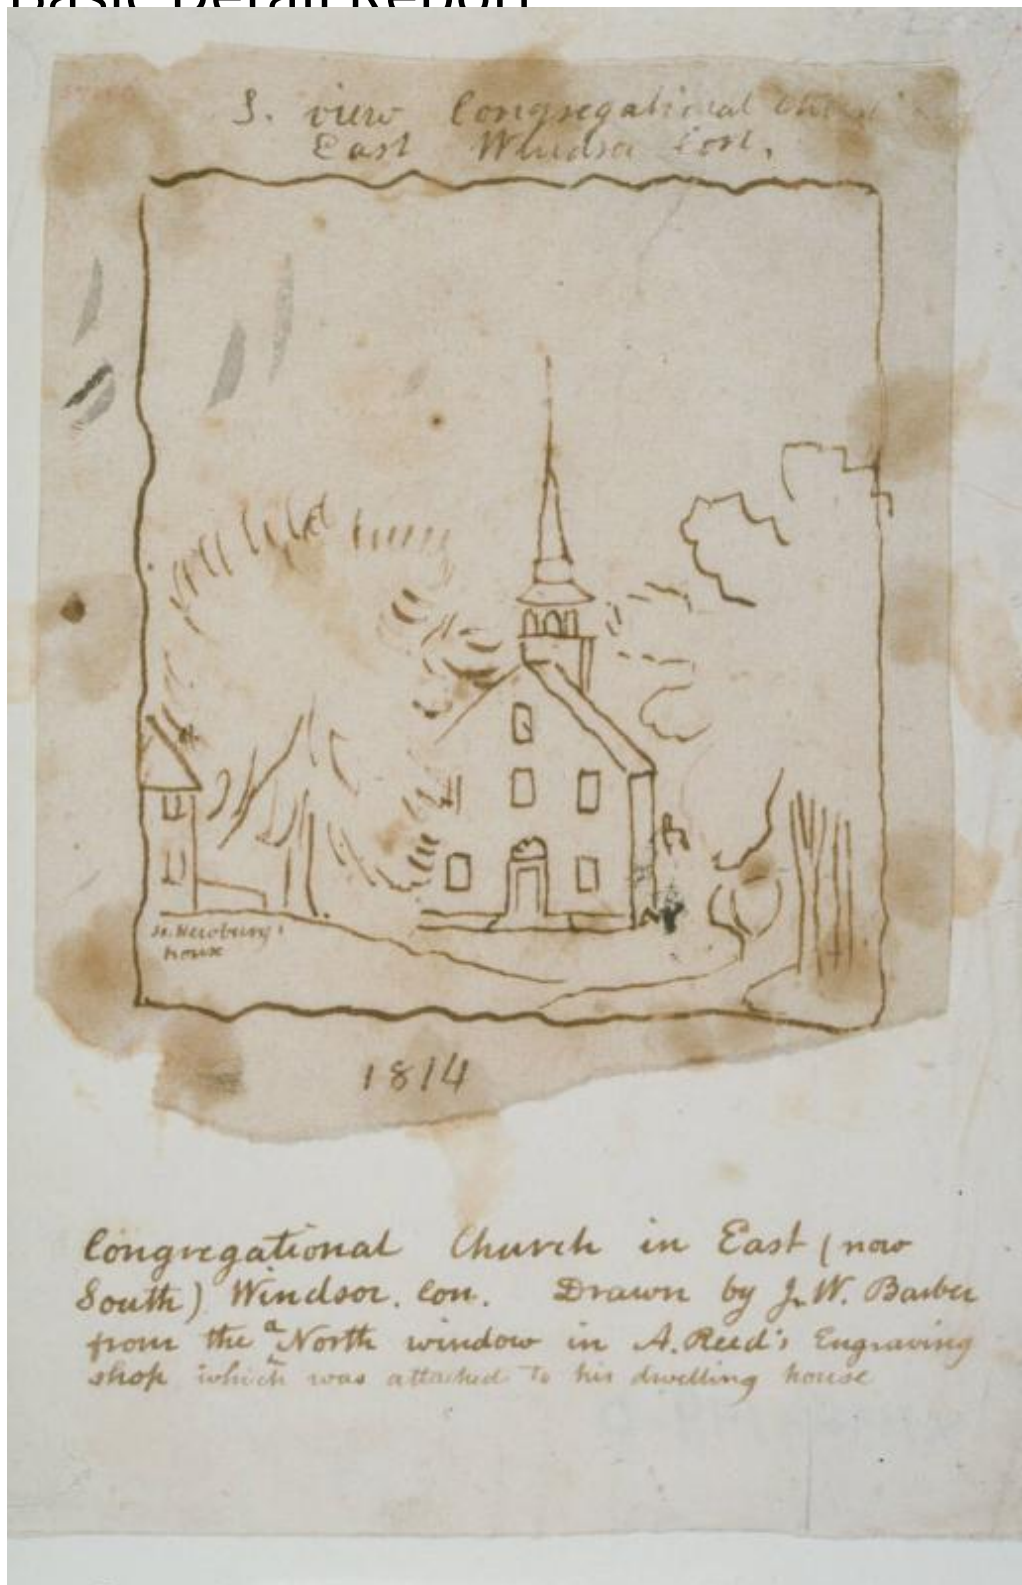 Basic Detail Report
S. view Congregational
East Windsor Con.
Newbury's
house
1814
Congregational Church in East (now
South) Windsor. Con. Drawn by J. W. Barber
from the a North window in A. Reed's Engraving
shop which was attached to his dwelling house